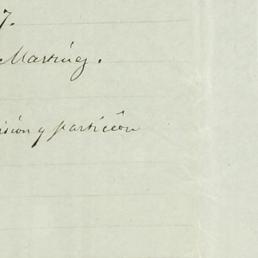 7.
Martinez.
isión y partición